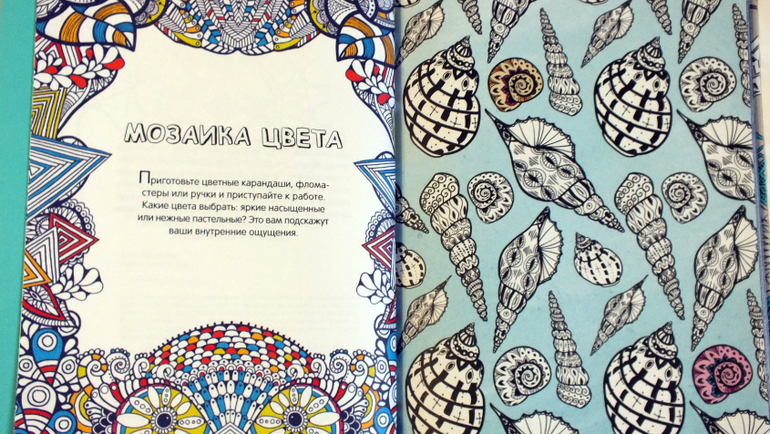 МОЗАИКА ЦВЕТА
Приготовьте цветные карандаши, флома-
стеры или ручки и приступайте к работе.
Какие цвета выбрать: яркие насыщенные
или нежные пастельные? Это вам подскажут
ваши внутренние ощущения.